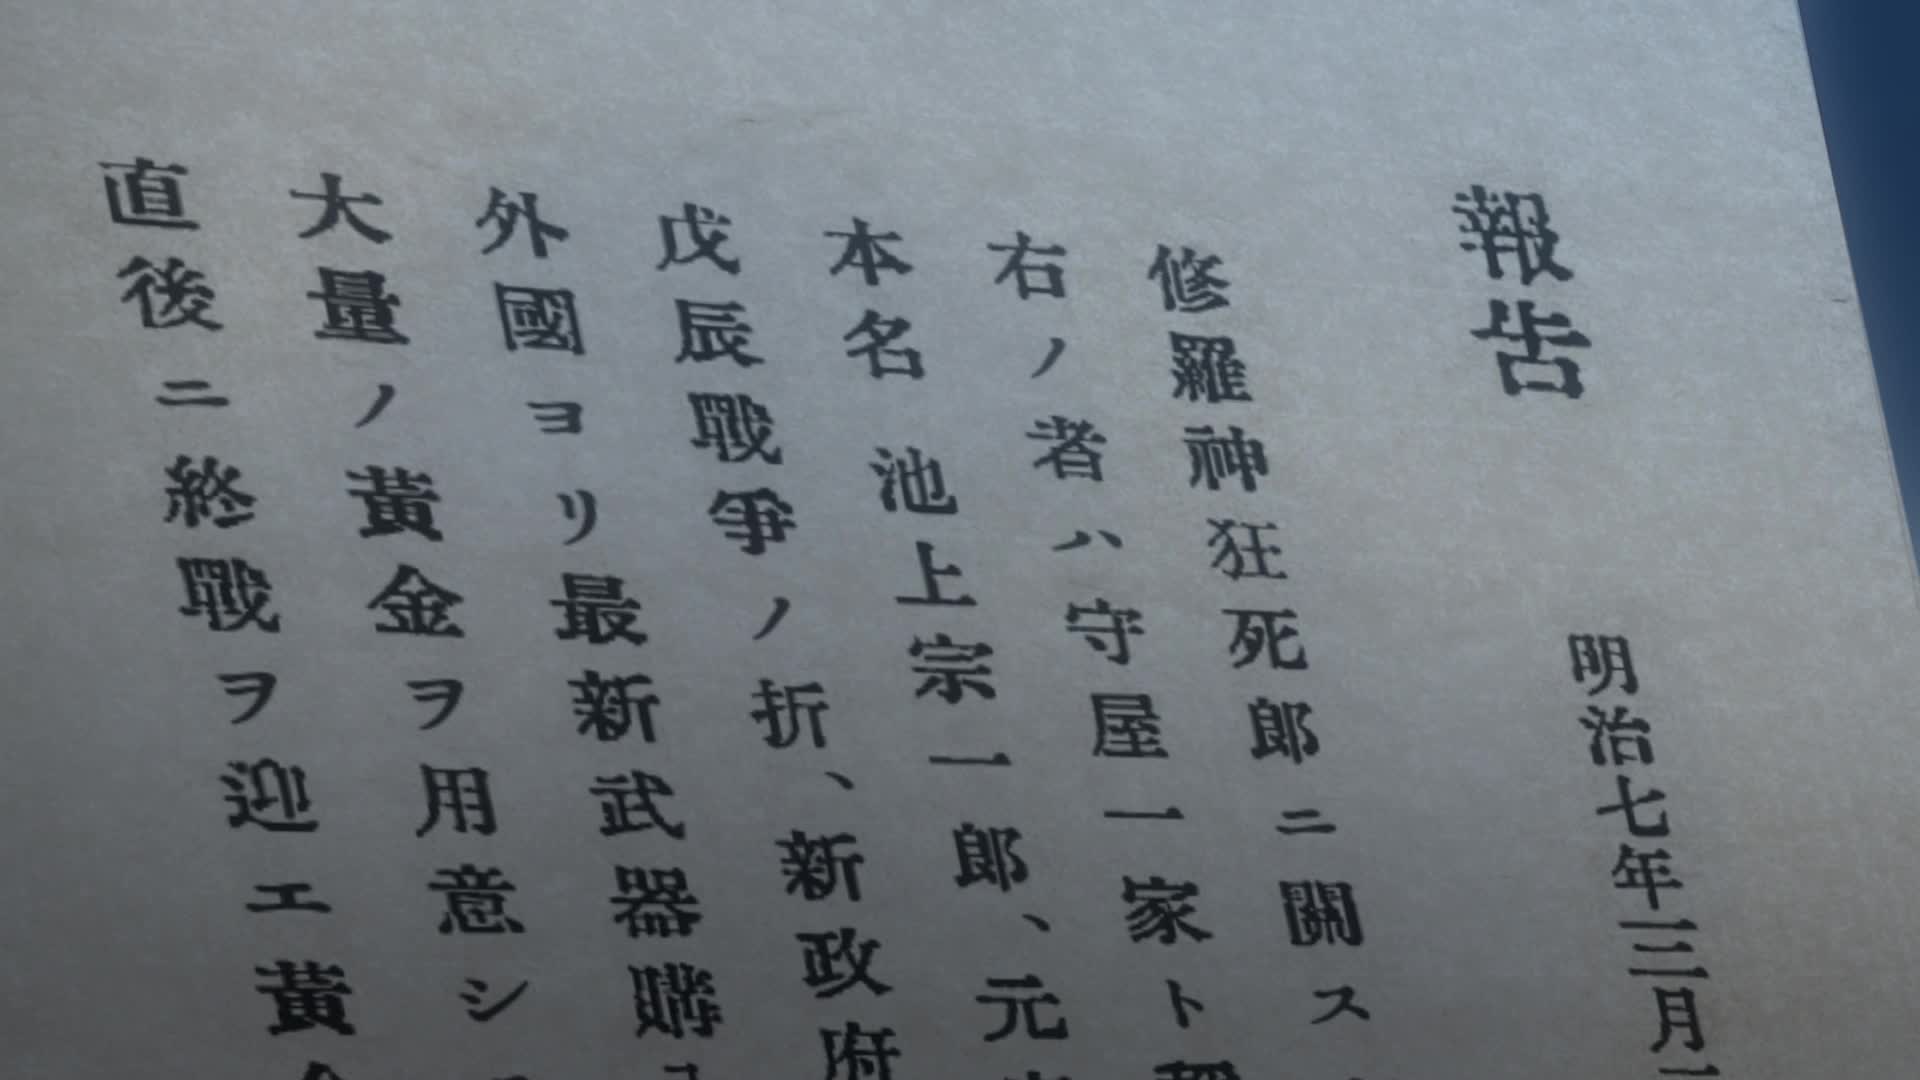 報告
明治七年三月
修羅神狂死郎ニ關ス
右ノ者ハ守屋一家ト
本名 池上宗一郎、元
戊辰戰爭ノ折、新政府
外國ヨリ最新武器購
大量ノ黃金ヲ用意シ
直後ニ終戰ヲ迎エ黃